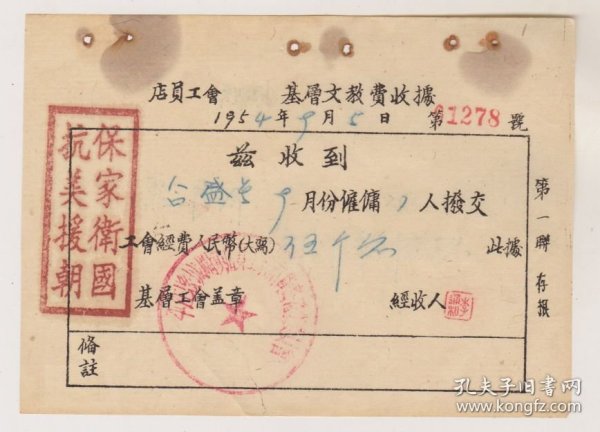 店員工會 基層文教費收據
1954年9月5日 第61278號
茲收到
合盛长 9 月份僱傭 1 人撥交
工會經費人民幣(大寫) 伍千 此據
基層工會盖章 經收人
備註
第一聯存根
保家衛國
抗美援朝
孔夫子旧书网
www.kongfz.com